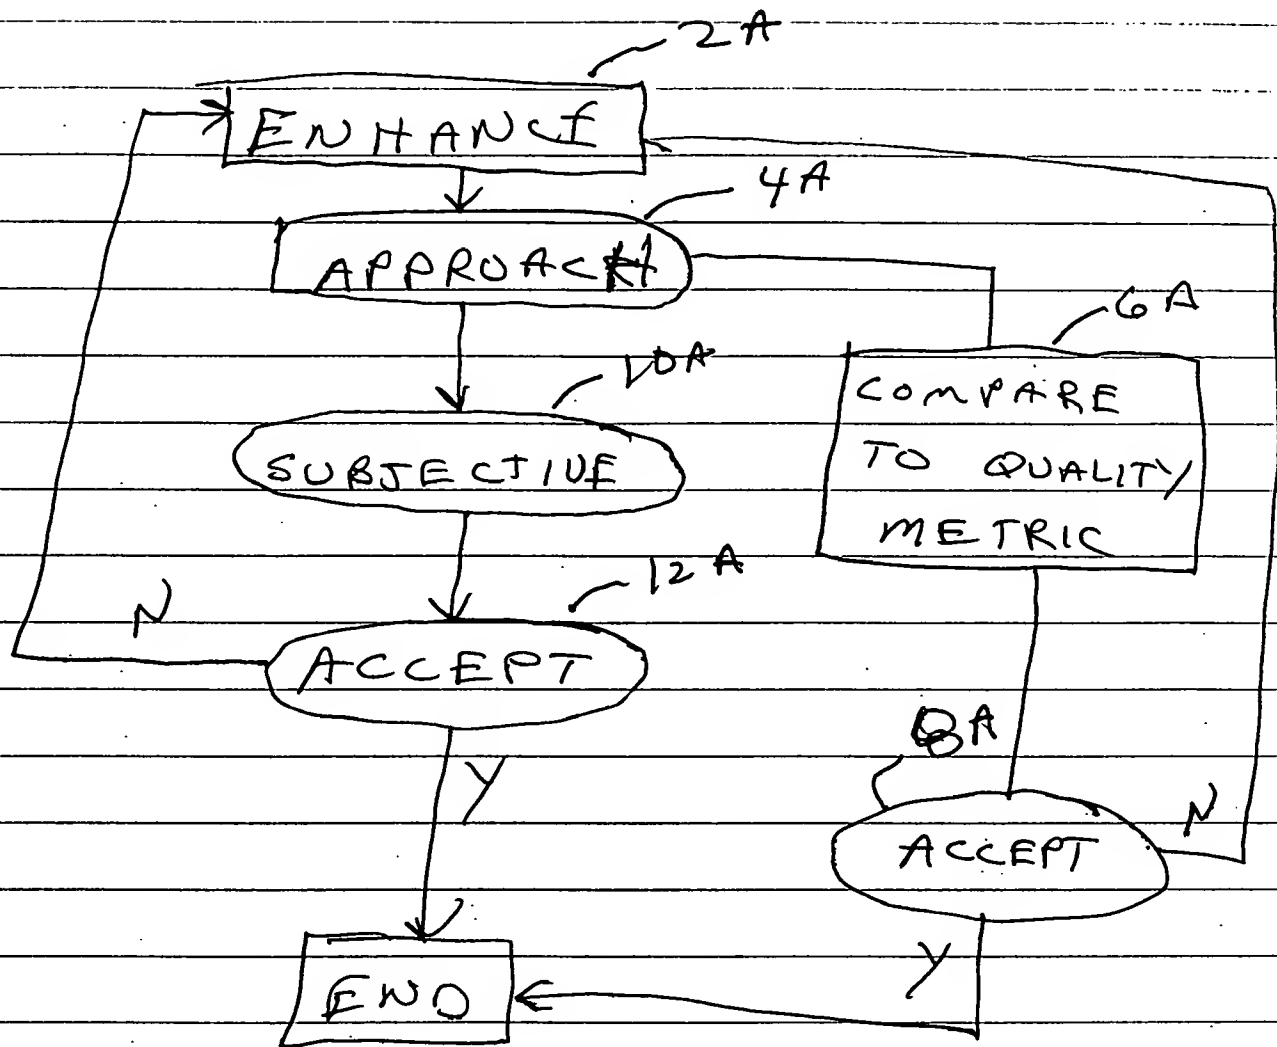 2A
ENHANCE
4A
APPROACH
6A
10A
COMPARE
TO QUALITY
METRIC
SUBJECTIVE
12A
N
ACCEPT
8A
N
Y
ACCEPT
Y
END